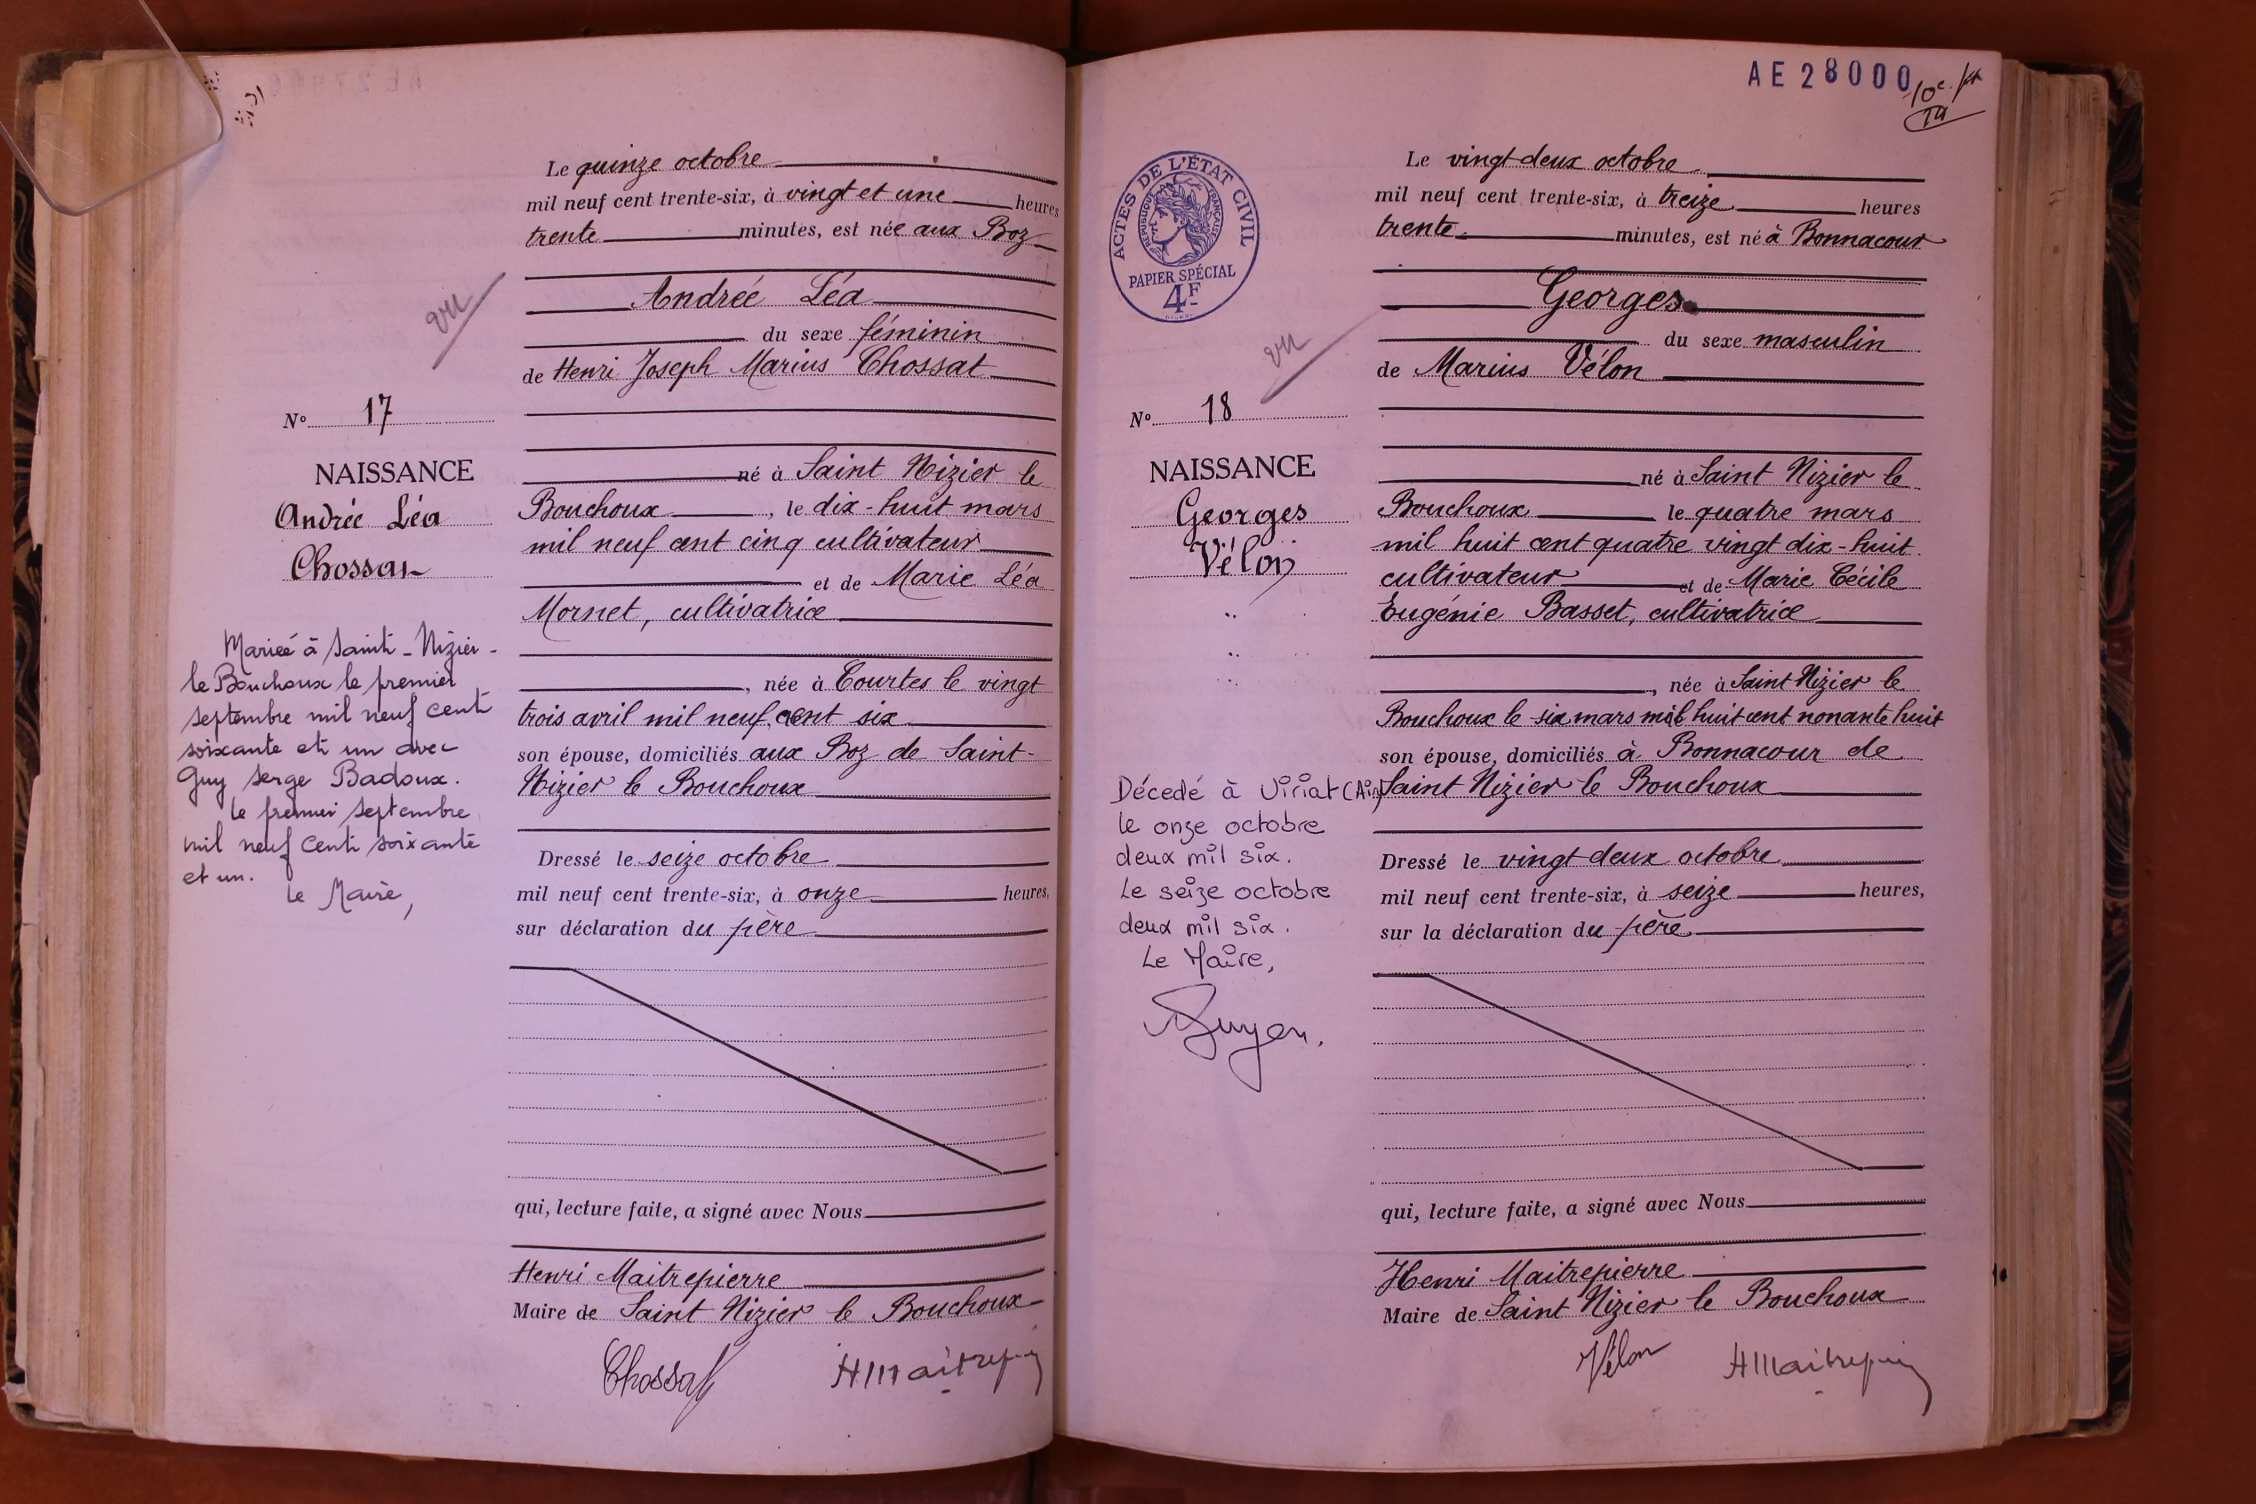 Le quinze octobre
mil neuf cent trente-six, à vingt et une heures
trente minutes, est née aux Boz
Andrée Léa
du sexe féminin
de Henri Joseph Marius Chossat
né à Saint Nizier le
Bouchoux, le dix-huit mars
mil neuf cent cinq cultivateur
et de Marie Léa
Mornet, cultivatrice
, née à Courtes le vingt
trois avril mil neuf cent six
son épouse, domiciliés aux Boz de Saint-
Nizier le Bouchoux
Dressé le seize octobre
mil neuf cent trente-six, à onze heures,
sur déclaration du père
qui, lecture faite, a signé avec Nous
Henri Maitrepierre
Maire de Saint Nizier le Bouchoux
Chossat
HMaitrepierre
vu
N° 17
NAISSANCE
Andrée Léa
Chossat
Mariée à Saint-Nizier-
le Bouchoux le premier
septembre mil neuf cent
soixante et un avec
Guy Serge Badoux.
le premier septembre
mil neuf cent soixante
et un.
Le Maire,
AE 28000
ACTES DE L'ÉTAT CIVIL
RÉPUBLIQUE FRANÇAISE
PAPIER SPÉCIAL
4F
vu
N° 18
NAISSANCE
Georges
Vélon
Décedé à Viriat (Ain)
le onze octobre
deux mil six.
Le seize octobre
deux mil six.
Le Maire,
Le vingt-deux octobre
mil neuf cent trente-six, à treize heures
trente minutes, est né à Bonnacour
Georges
du sexe masculin
de Marius Vélon
né à Saint Nizier le
Bouchoux le quatre mars
mil huit cent quatre vingt dix-huit
cultivateur et de Marie Cécile
Eugénie Basset, cultivatrice
, née à Saint Nizier le
Bouchoux le six mars mil huit cent nonante huit
son épouse, domiciliés à Bonnacour de
Saint Nizier le Bouchoux
Dressé le vingt-deux octobre
mil neuf cent trente-six, à seize heures,
sur la déclaration du père
qui, lecture faite, a signé avec Nous
Henri Maitrepierre
Maire de Saint Nizier le Bouchoux
Vélon
HMaitrepierre